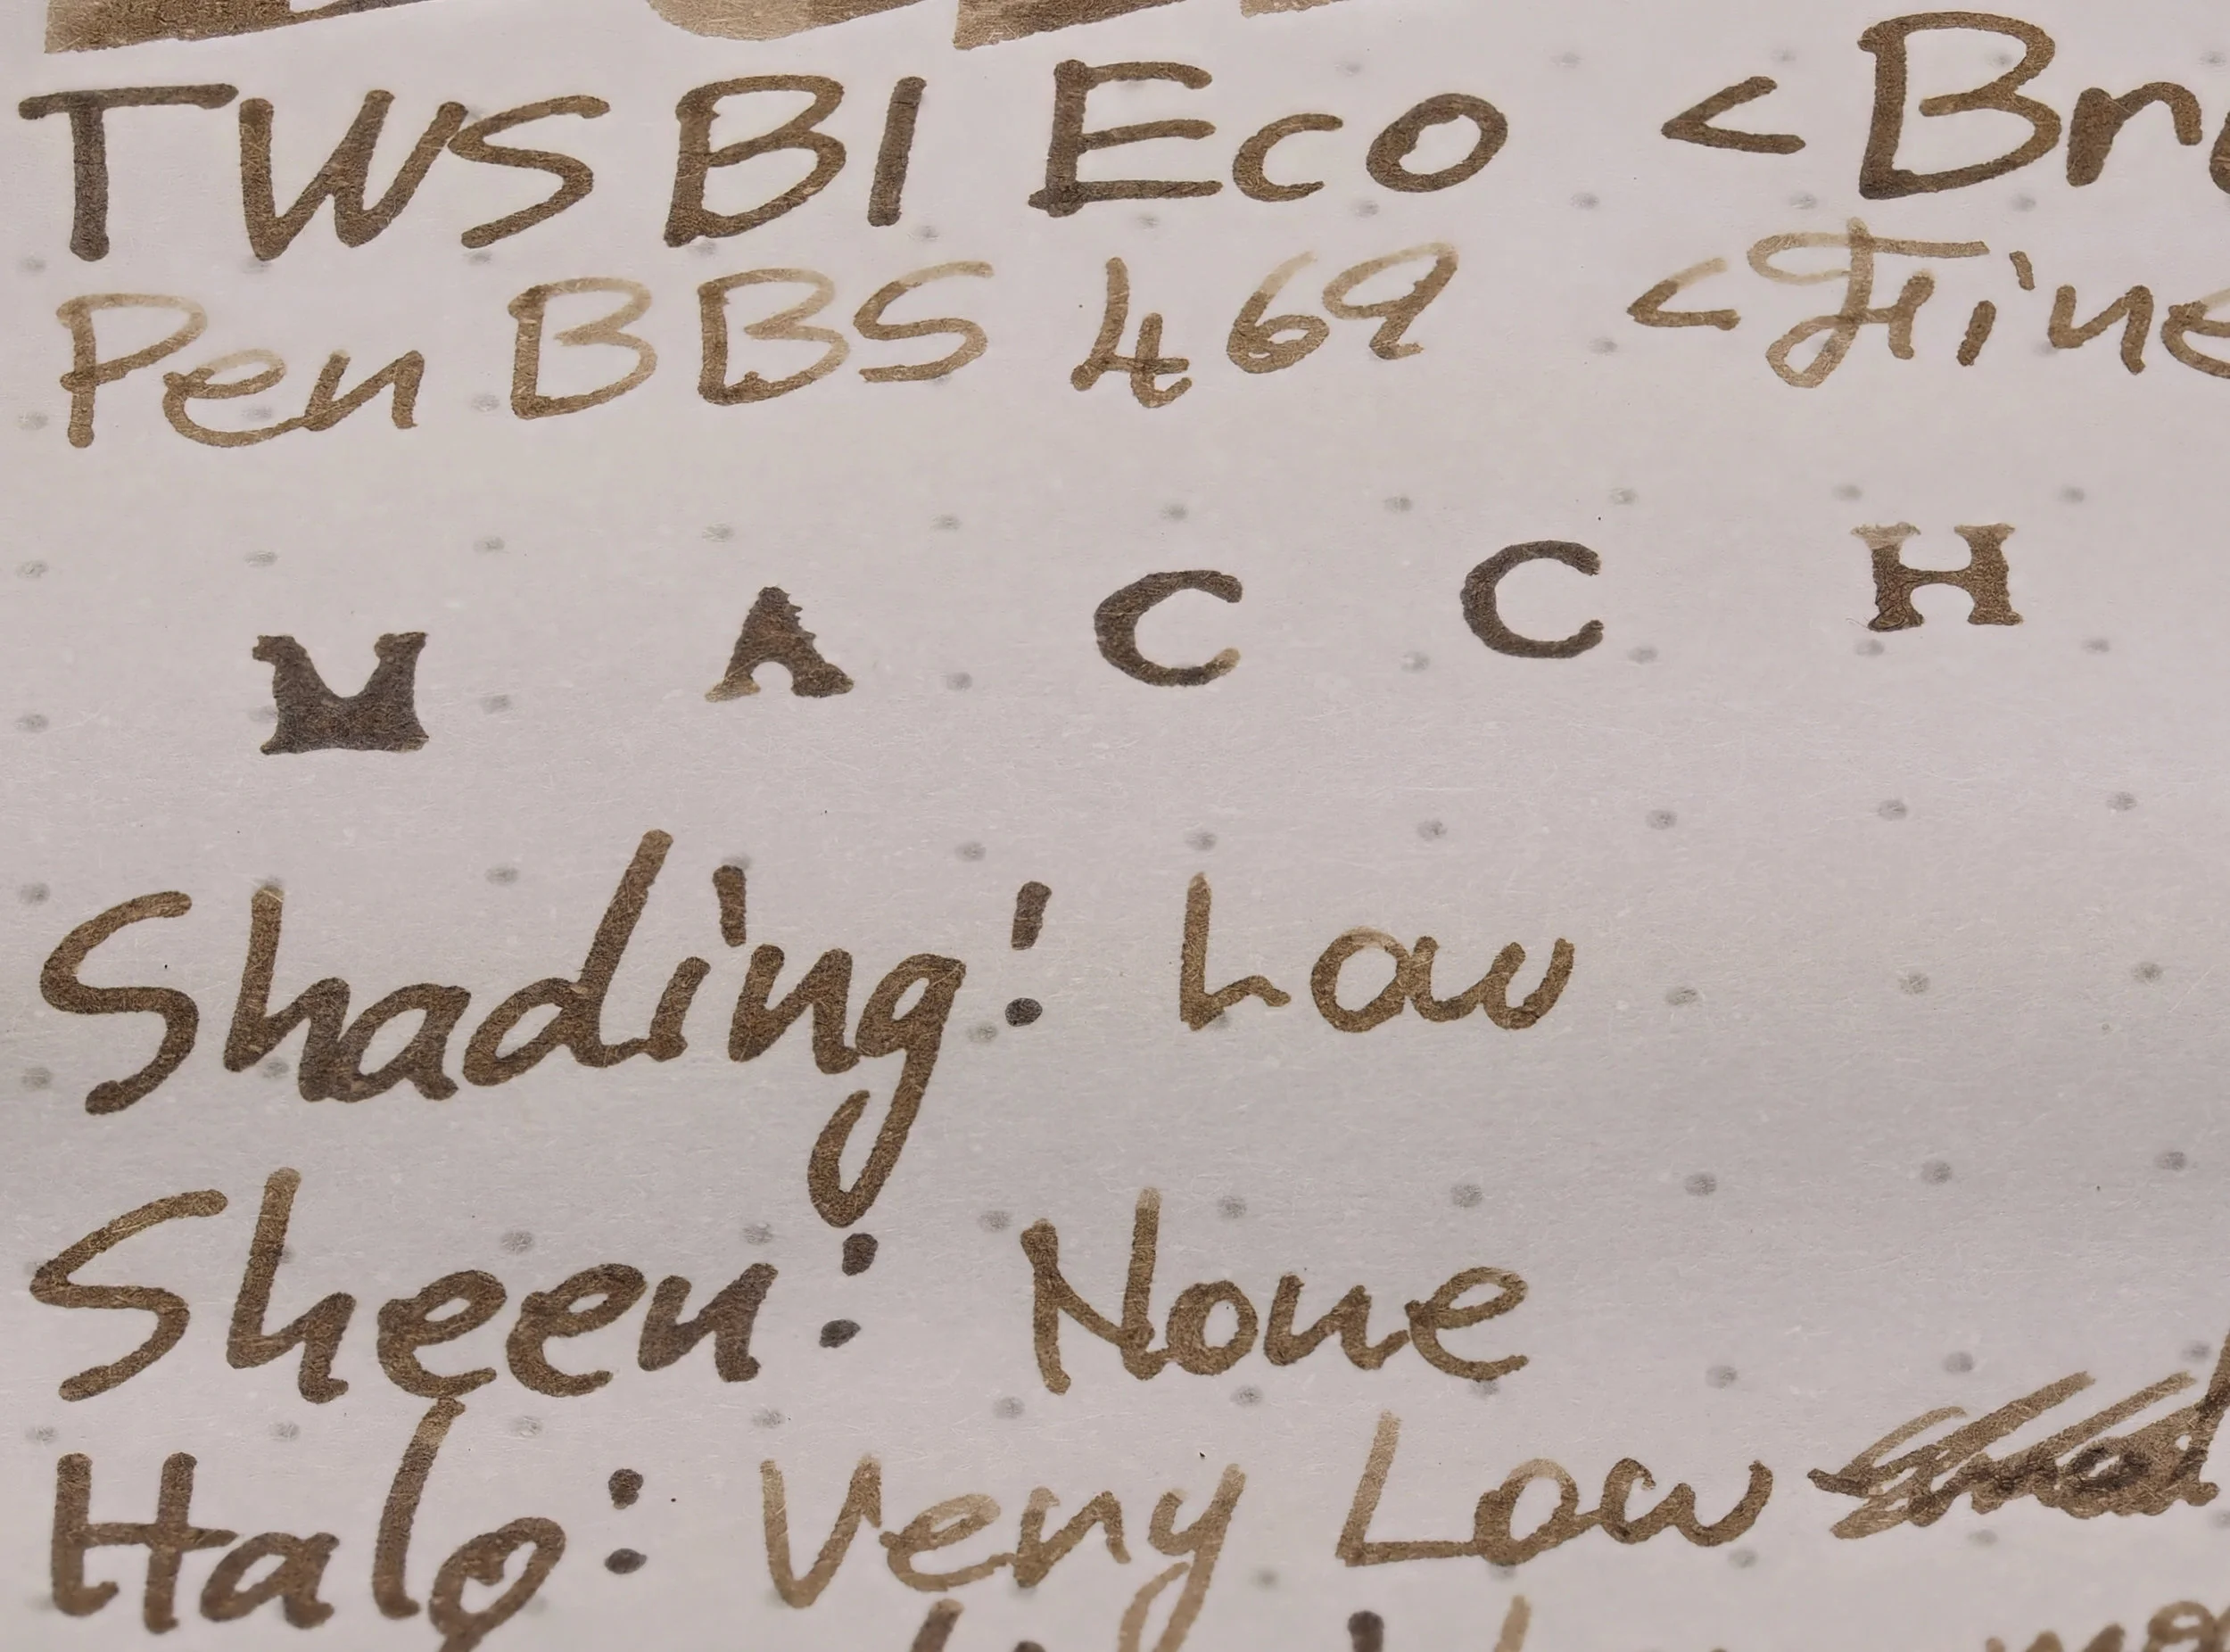 TWSBI Eco <Br
Pen BBS 469 <Fine
M A C C H
Shading: Low
Sheen: None
Halo: Very Low